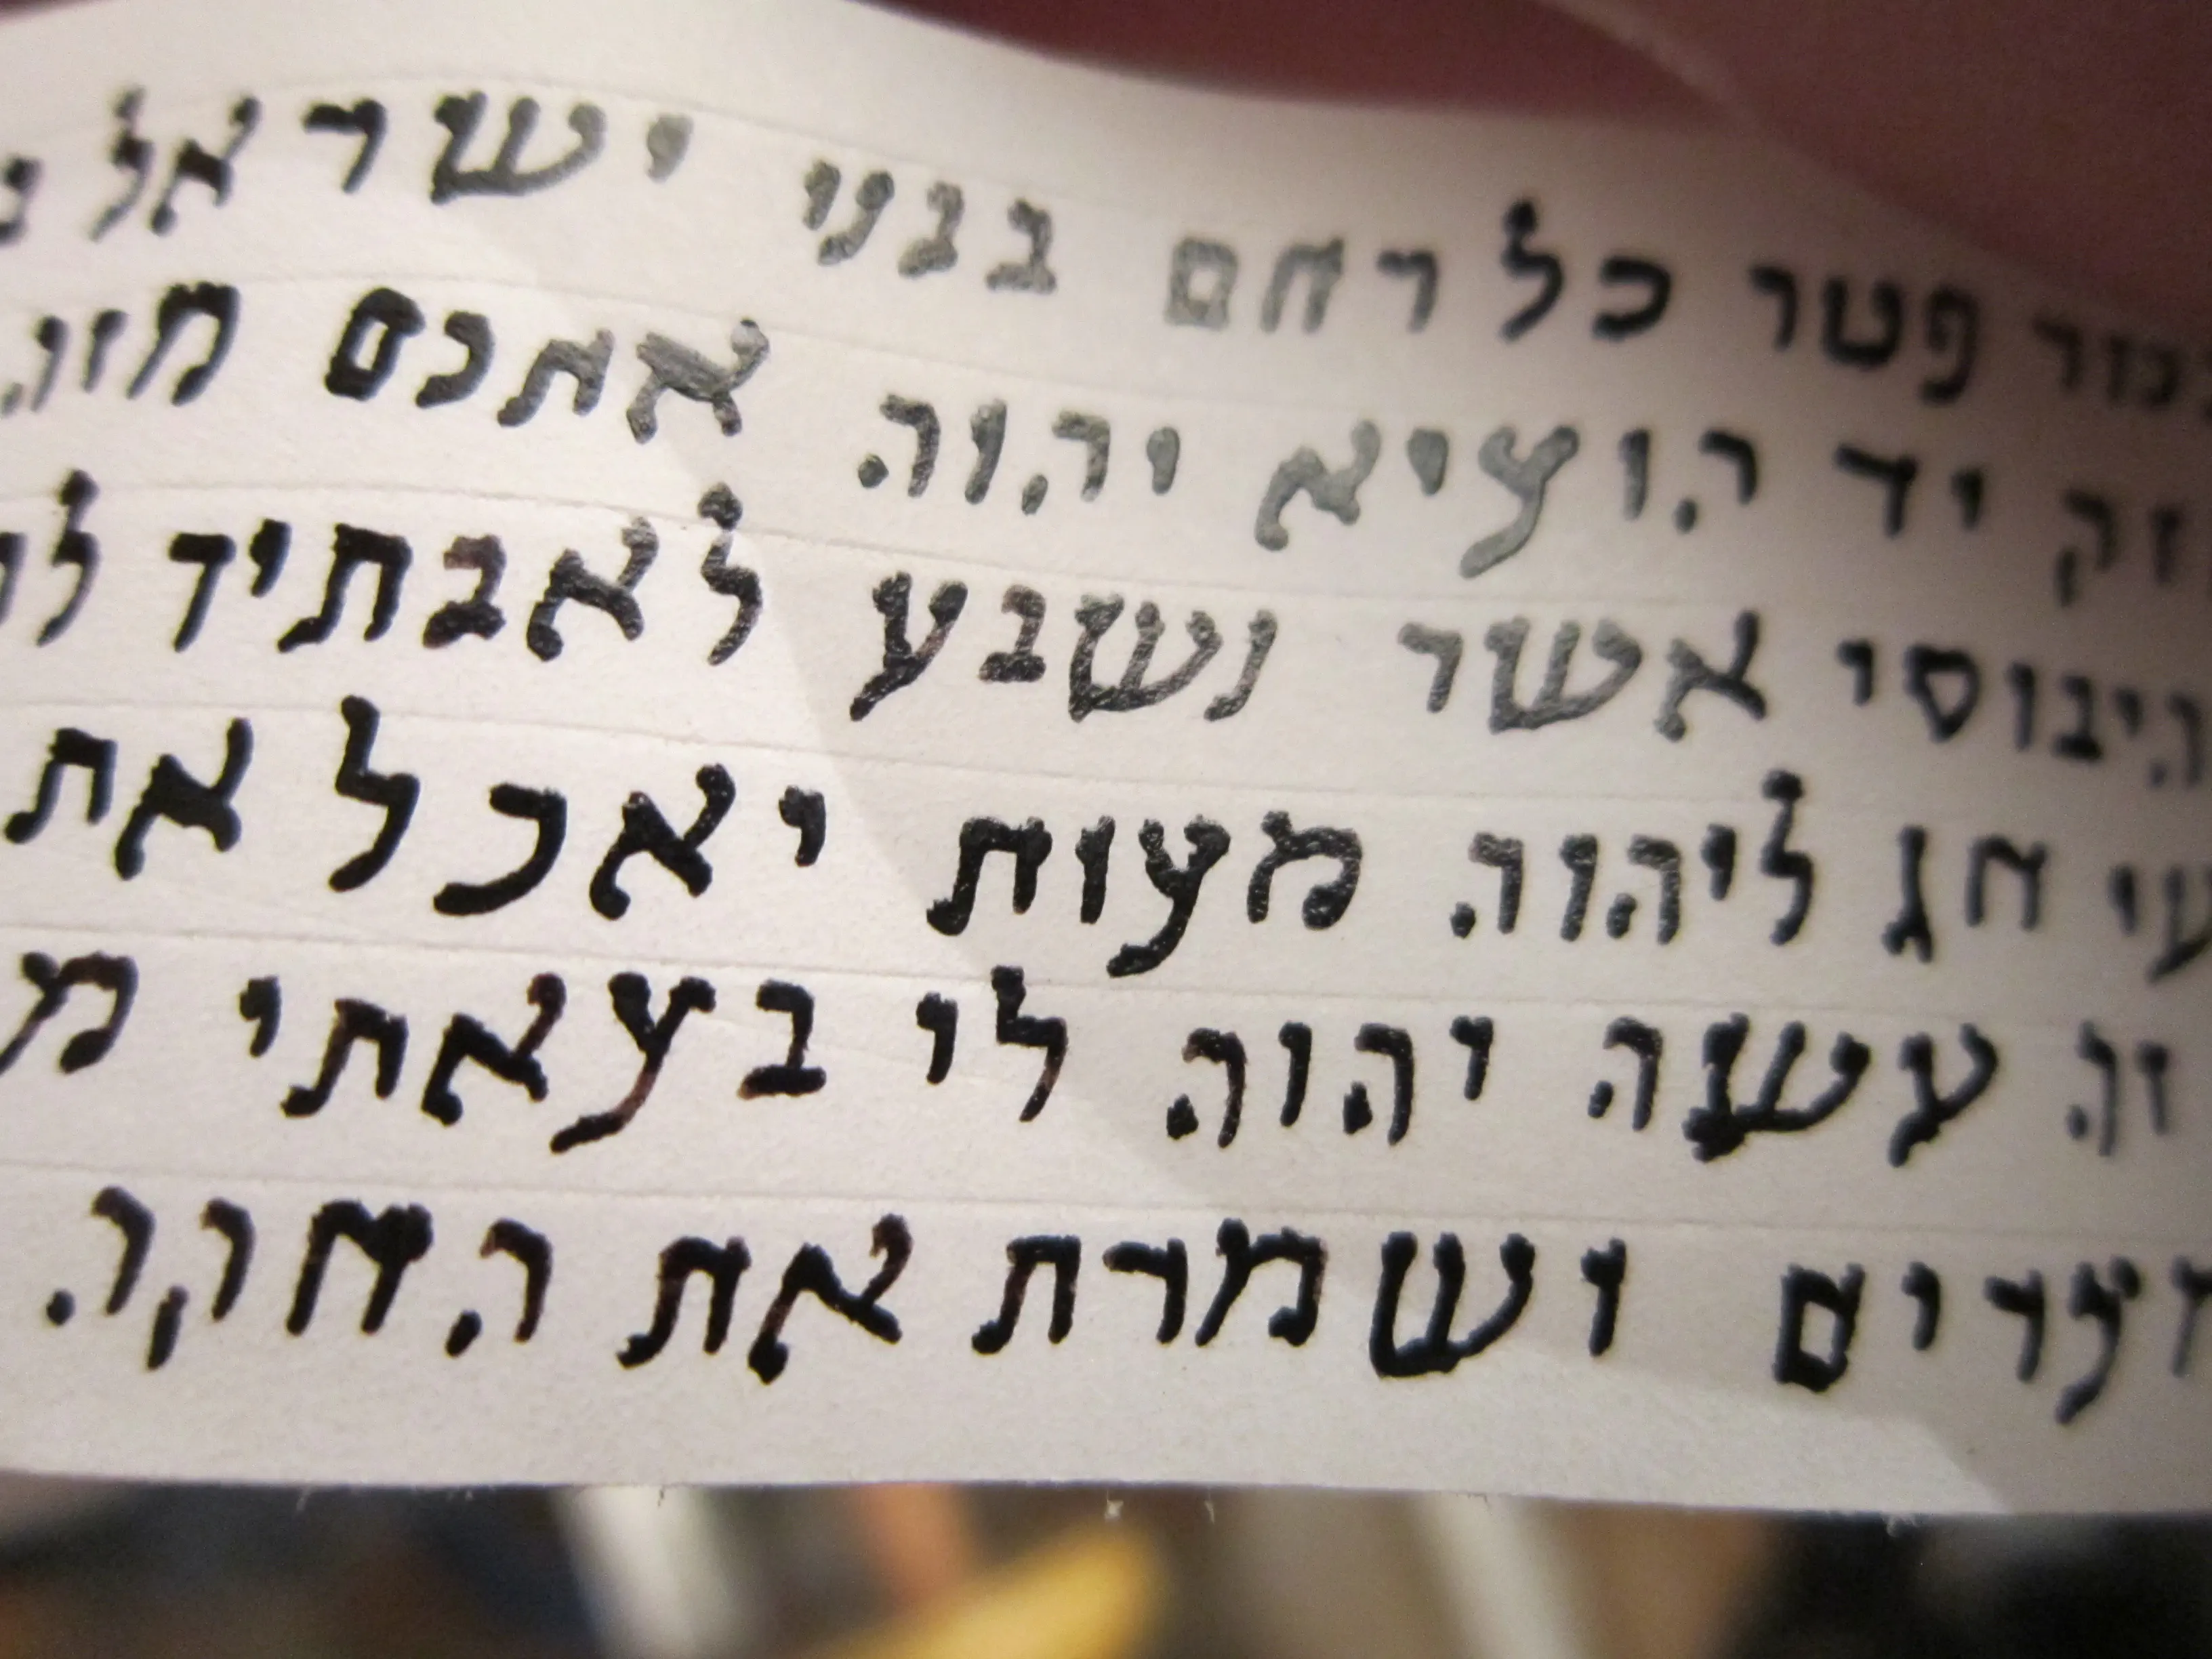 בכור פטר כל רחם בבני ישראל
זק יד הוציא יהוה אתכם מזה
היבוסי אשר נשבע לאבתיך
עי חג ליהוה מצות יאכל את
זה עשה יהוה לי בצאתי מ
צרים ושמרת את החקה